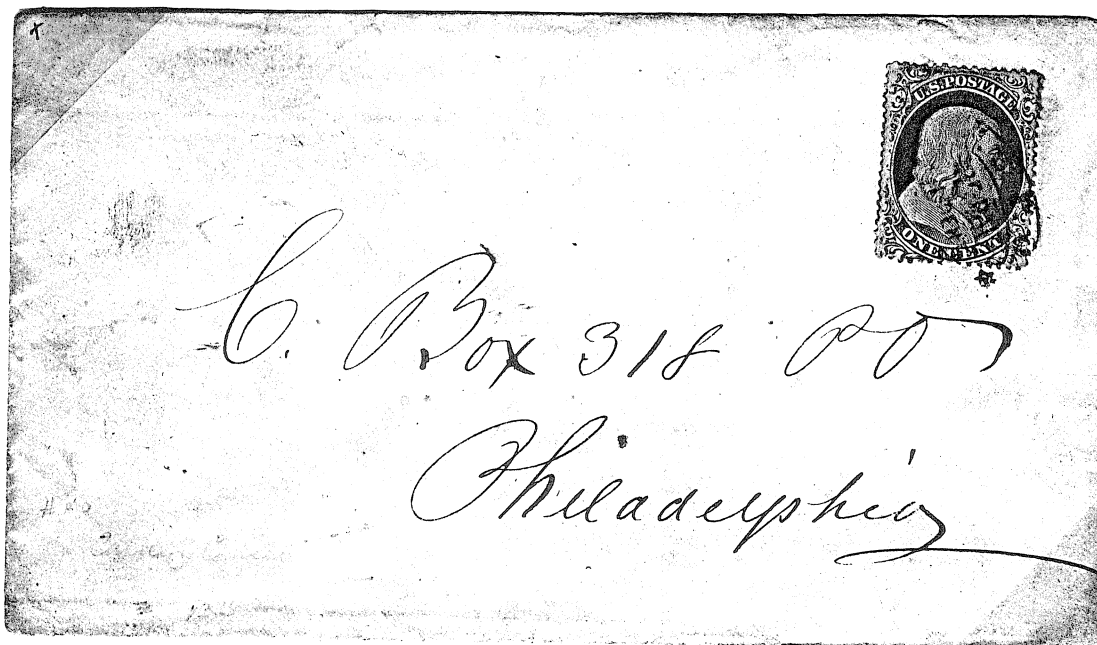 U.S. POSTAGE
ONE CENT
C. Box 318 PO
Philadelphia